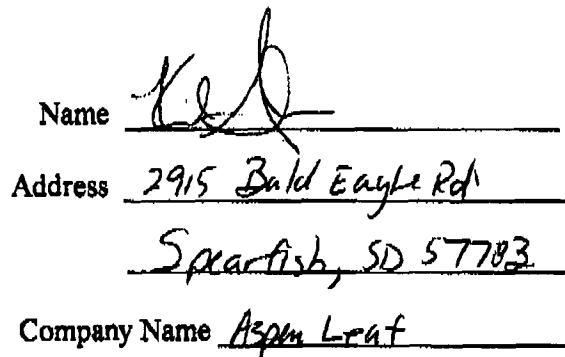 Name
Address 2915 Bald Eagle Rd
Spearfish, SD 57783
Company Name Aspen Leaf